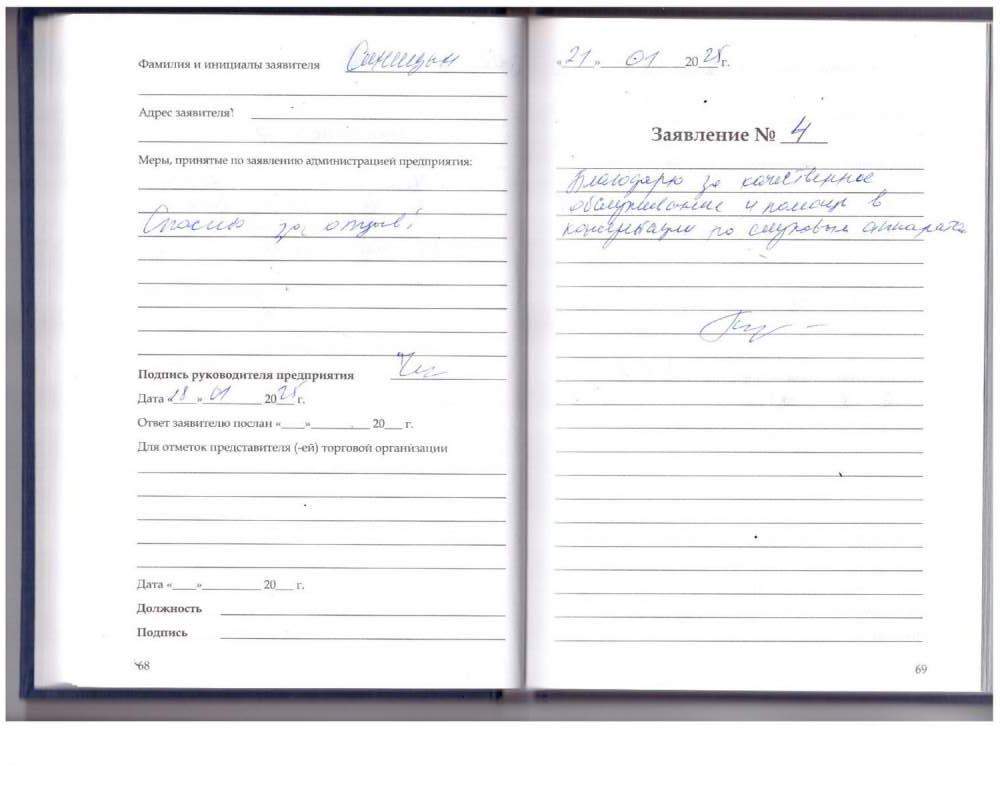 Фамилия и инициалы заявителя Синицын
Адрес заявителя
Меры, принятые по заявлению администрацией предприятия:
Спасибо за отзыв!
Подпись руководителя предприятия
Дата «28» 01 2025 г.
Ответ заявителю послан «___»_________ 20___ г.
Для отметок представителя (-ей) торговой организации
Дата «___»_________ 20___ г.
Должность
Подпись
68
«21» 01 2025 г.
Заявление № 4
Благодарю за качественное
обслуживание и помощь в
консультации по слуховым аппарата
69